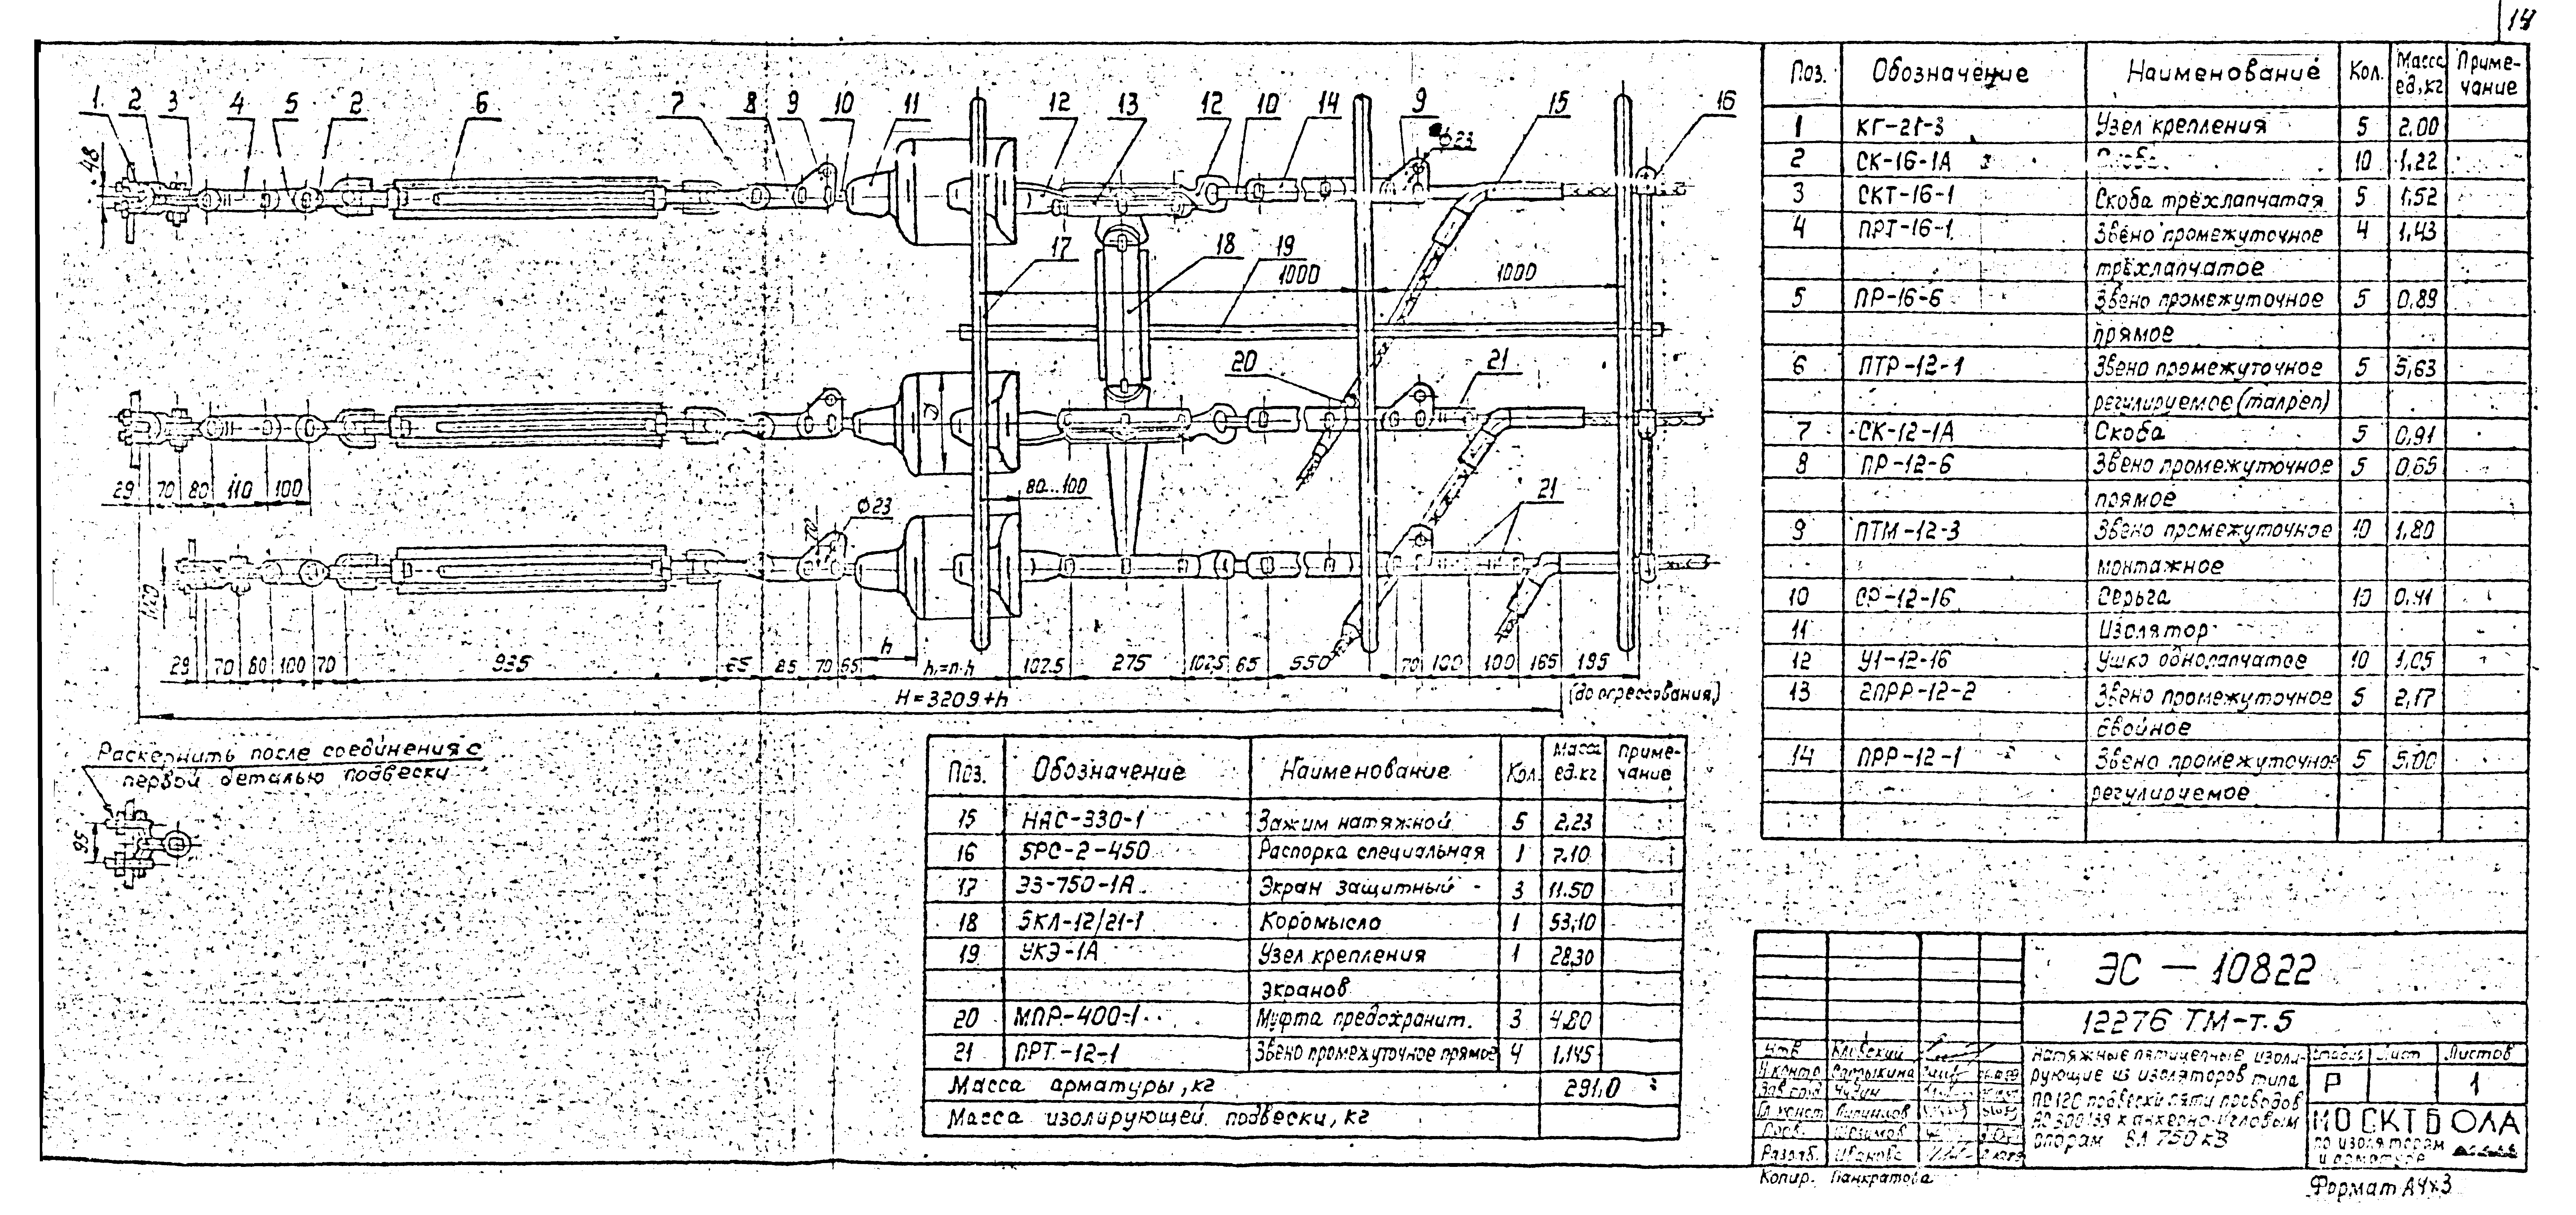 14
1 2 3 4 5 2 6 7 8 9 10 11 12 13 12 10 14 9 15 16
48
Ф23
17 18 19
1000 1000
20 21
29 70 80 110 100
80...100
21
Ф23
70
120
29 70 80 100 70 935 65 85 70 65 h h₁=n·h 102.5 275 102.5 65 550 70 100 100 165 195
H=3209+h
(до опрессования)
Раскернить после соединения с
первой деталью подвески
95
Поз. Обозначение Наименование Кол. Масса ед.кг Примечание
1 КГ-21-3 Узел крепления 5 2.00
2 СК-16-1А Скоба 10 1,22
3 СКТ-16-1 Скоба трёхлапчатая 5 1,52
4 ПРТ-16-1 Звено промежуточное 4 1,43
трёхлапчатое
5 ПР-16-6 Звено промежуточное 5 0,89
прямое
6 ПТР-12-1 Звено промежуточное 5 5,63
регулируемое (талреп)
7 СК-12-1А Скоба 5 0,91
8 ПР-12-6 Звено промежуточное 5 0,65
прямое
9 ПТМ-12-3 Звено промежуточное 10 1,80
монтажное
10 СР-12-16 Серьга 10 0,41
11 Изолятор
12 У1-12-16 Ушко однолапчатое 10 1,05
13 2ПРР-12-2 Звено промежуточное 5 2,17
двойное
14 ПРР-12-1 Звено промежуточное 5 5,00
регулируемое
Поз. Обозначение Наименование Кол. Масса ед.кг Примечание
15 НАС-330-1 Зажим натяжной 5 2,23
16 5РС-2-450 Распорка специальная 1 7.10
17 ЭЗ-750-1А Экран защитный 3 11.50
18 5КЛ-12/21-1 Коромысло 1 53,10
19 УКЭ-1А Узел крепления 1 28,30
экранов
20 МПР-400-1 Муфта предохранит. 3 4.80
21 ПРТ-12-1 Звено промежуточное прямое 4 1,145
Масса арматуры, кг 291.0
Масса изолирующей подвески, кг
ЭС — 10822
12276 ТМ-т.5
Натяжные пятицепные изоли-
рующие из изоляторов типа
ПС120 подвески пяти проводов
АС 300/39 к анкерно-угловым
опорам ВЛ 750 кВ
Стадия Лист Листов
Р 1
МОСКТБ ОЛА
по изоляторам
и арматуре
Утв.
Н.контр.
Зав.отд. Чудин
Гл.конст.
Пров.
Разраб. Иванова
Копир. Панкратова
Формат А4х3